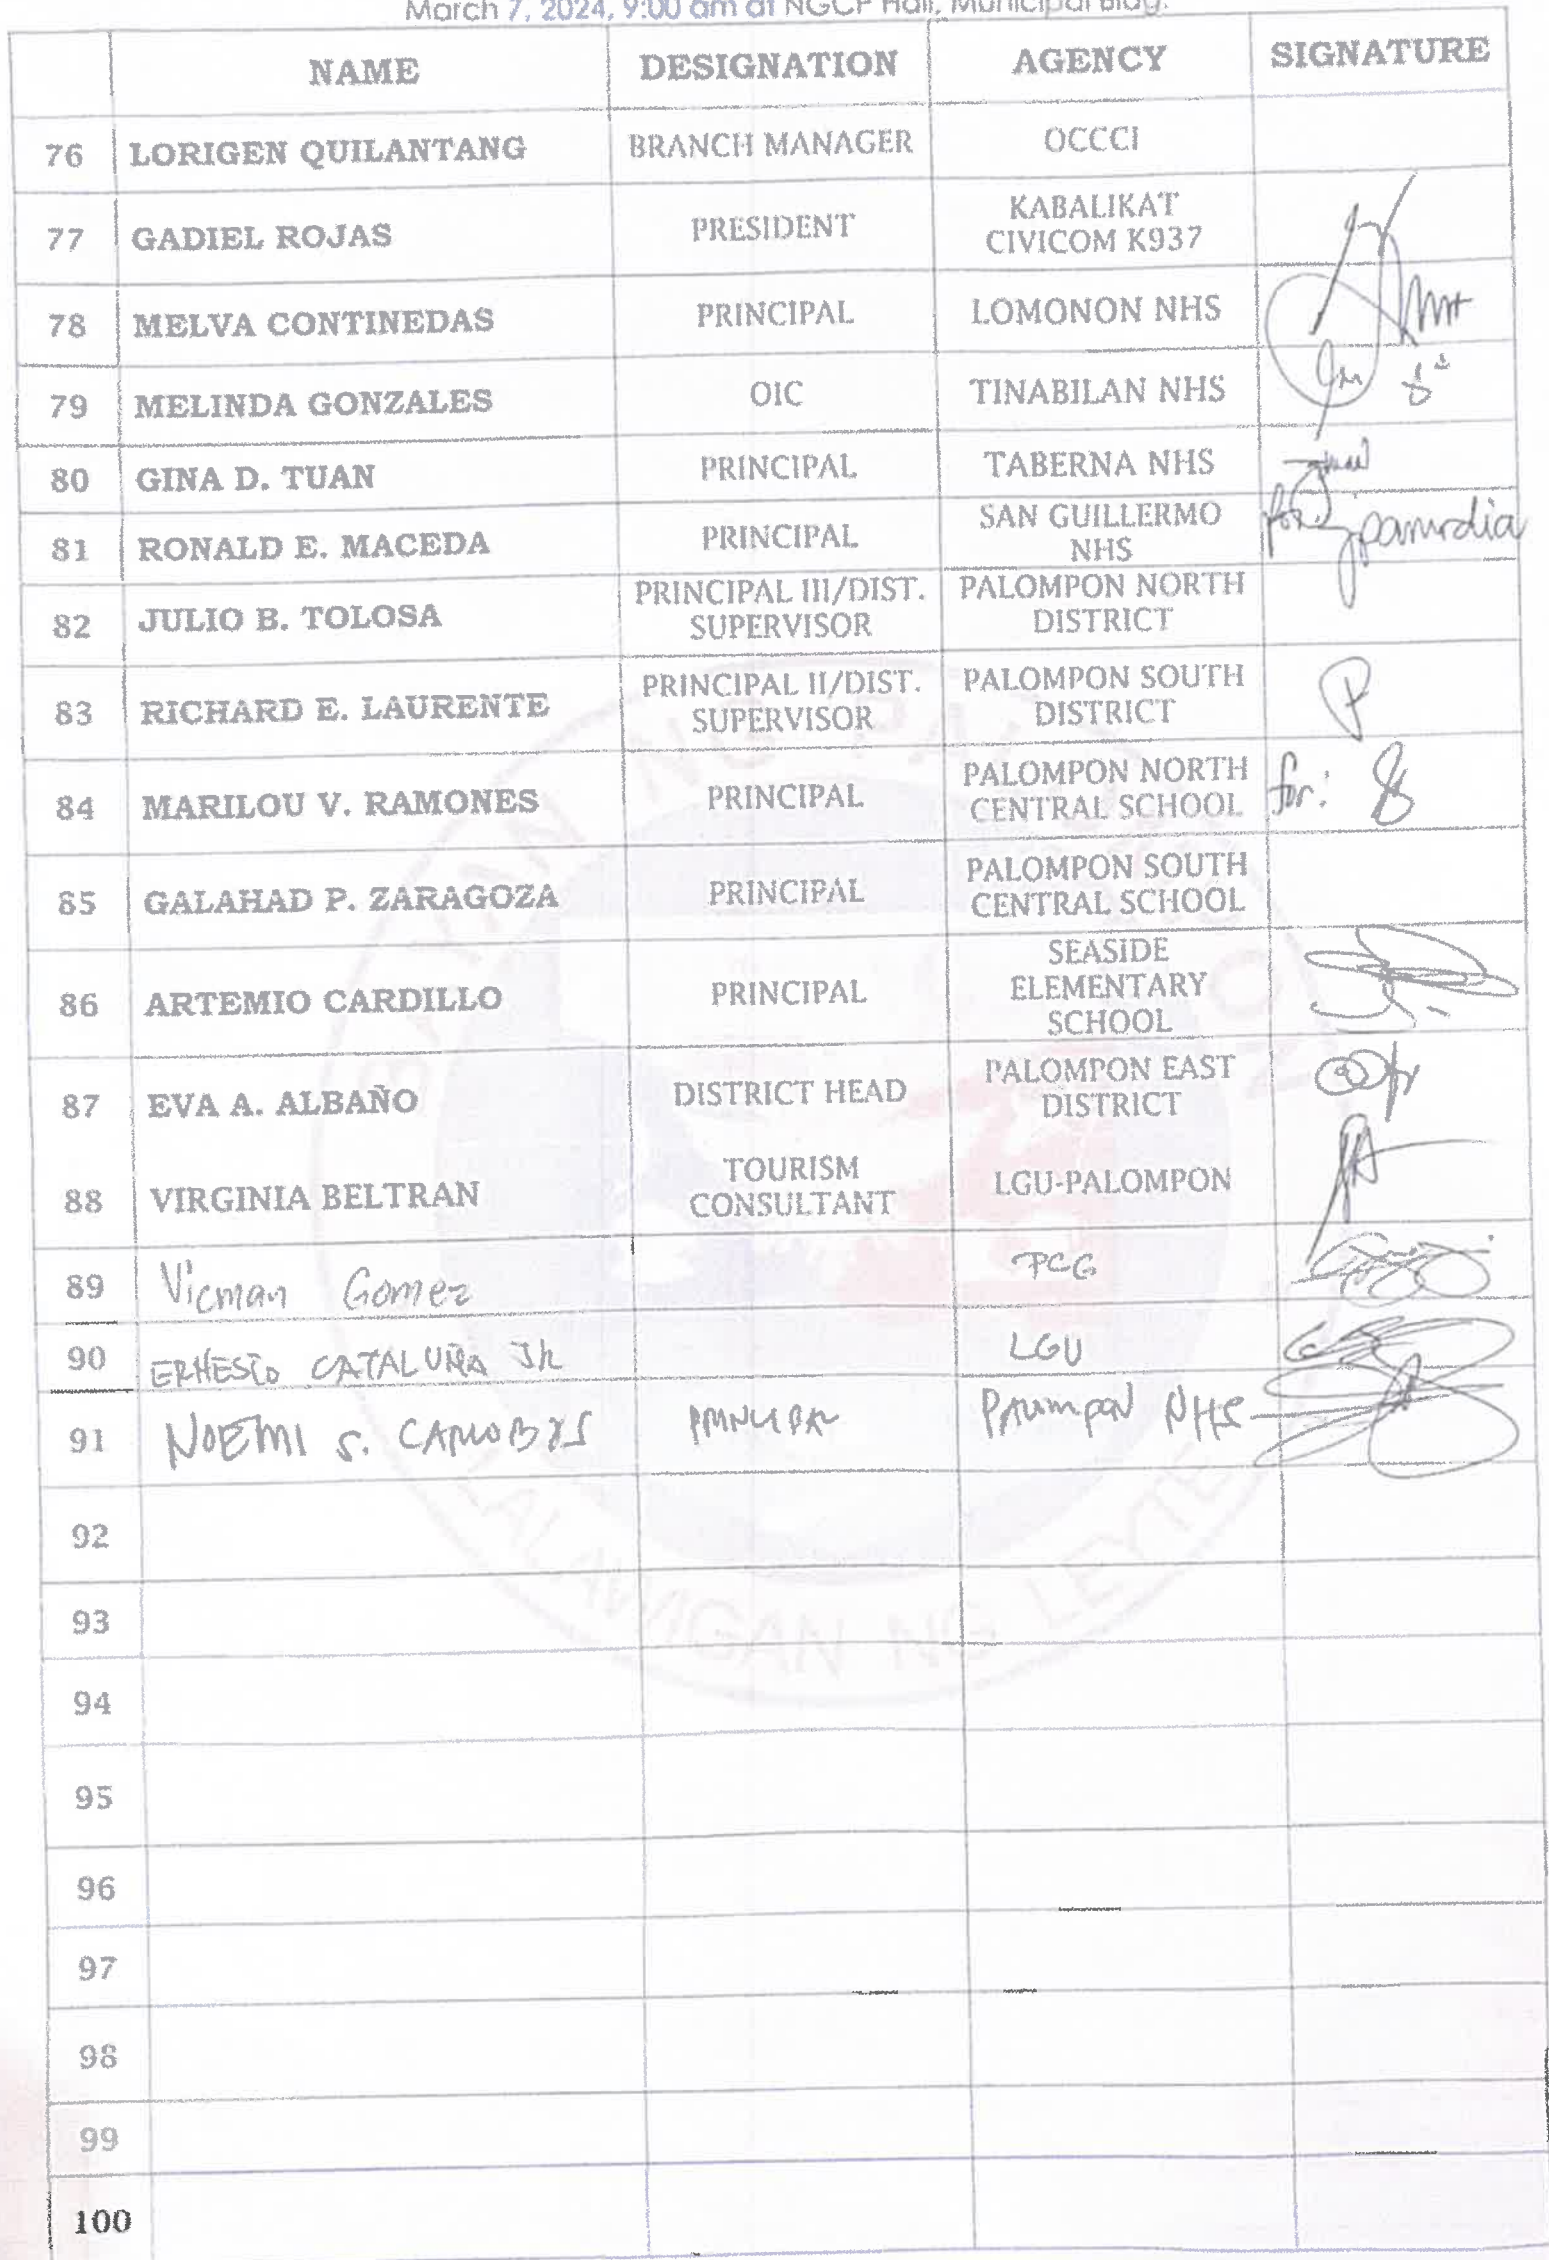 March 7, 2024, 9:00 am at NGCP Hall, Municipal Bldg.
NAME DESIGNATION AGENCY SIGNATURE
76 LORIGEN QUILANTANG BRANCH MANAGER OCCCI
77 GADIEL ROJAS PRESIDENT KABALIKAT
CIVICOM K937
78 MELVA CONTINEDAS PRINCIPAL LOMONON NHS
79 MELINDA GONZALES OIC TINABILAN NHS
80 GINA D. TUAN PRINCIPAL TABERNA NHS
81 RONALD E. MACEDA PRINCIPAL SAN GUILLERMO
NHS
for:
82 JULIO B. TOLOSA PRINCIPAL III/DIST.
SUPERVISOR
PALOMPON NORTH
DISTRICT
83 RICHARD E. LAURENTE PRINCIPAL II/DIST.
SUPERVISOR
PALOMPON SOUTH
DISTRICT
84 MARILOU V. RAMONES PRINCIPAL PALOMPON NORTH
CENTRAL SCHOOL
for:
85 GALAHAD P. ZARAGOZA PRINCIPAL PALOMPON SOUTH
CENTRAL SCHOOL
86 ARTEMIO CARDILLO PRINCIPAL SEASIDE
ELEMENTARY
SCHOOL
87 EVA A. ALBAÑO DISTRICT HEAD PALOMPON EAST
DISTRICT
88 VIRGINIA BELTRAN TOURISM
CONSULTANT
LGU-PALOMPON
89 Vicman Gomez PCG
90 ERNESTO CATALUÑA JR LGU
91 NOEMI S. Palompon NHS
92
93
94
95
96
97
98
99
100
BAYAN NG PALOMPON
LALAWIGAN NG LEYTE